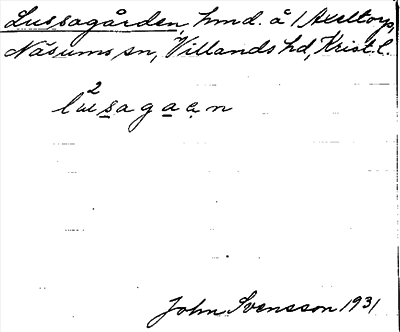 Lussagården, hmd. å 1 Axeltorp,
Näsums sn, Villands hd, Krist. l.
2
lusagaen
John Svensson 1931